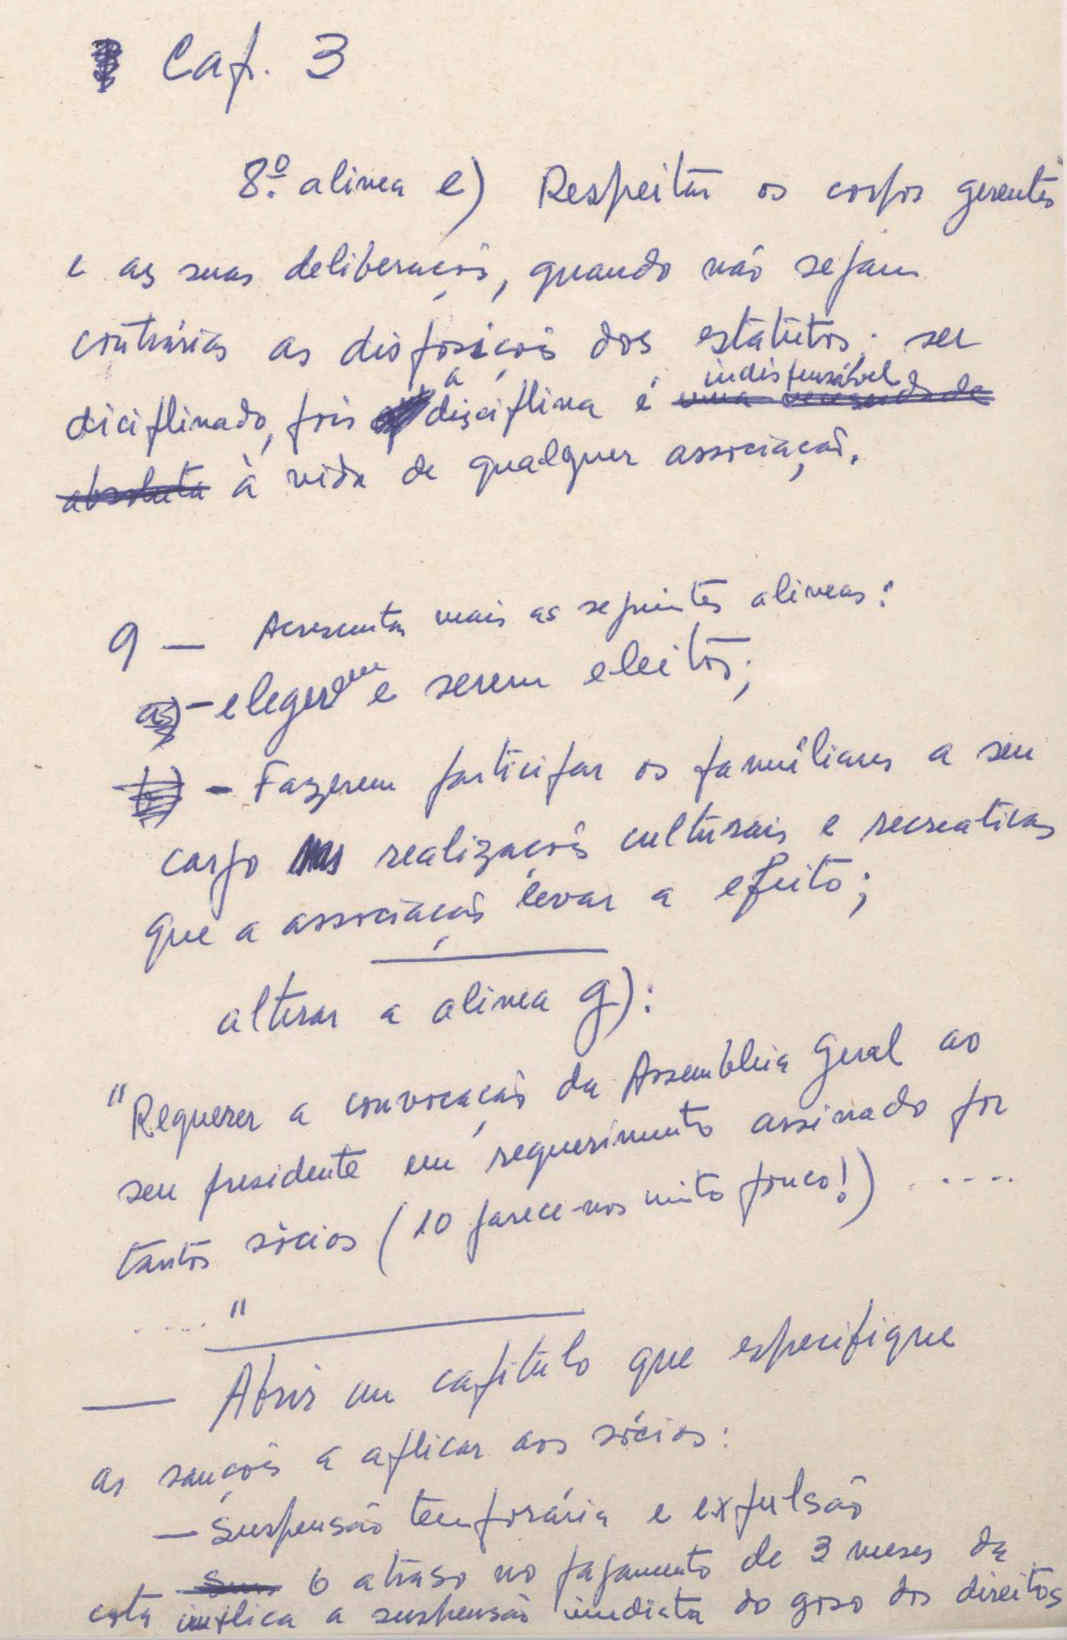 Cap. 3
8.º alinea e) Respeitar os corpos gerentes
e as suas deliberações, quando não sejam
contrárias as disposições dos estatutos; ser
indispensável
diciplinado, pois a disciplina é uma necessidade
absoluta à vida de qualquer associação.
9 — Acrescentar mais as seguintes alineas:
a) - elegerem e serem eleitos;
b) - Fazerem participar os famíliares a seu
cargo nas realizações culturais e recreativas
que a associação levar a efeito;
alterar a alinea g):
"Requerer a convocação da Assembleia Geral ao
seu presidente em requerimento assinado por
tantos sócios (10 parece-nos muito pouco!) .....
....."
— Abrir um capitulo que especifique
as sanções a aplicar aos sócios:
— Suspensão temporária e expulsão
O atraso no pagamento de 3 meses da
cota implica a suspensão imediata do goso dos direitos